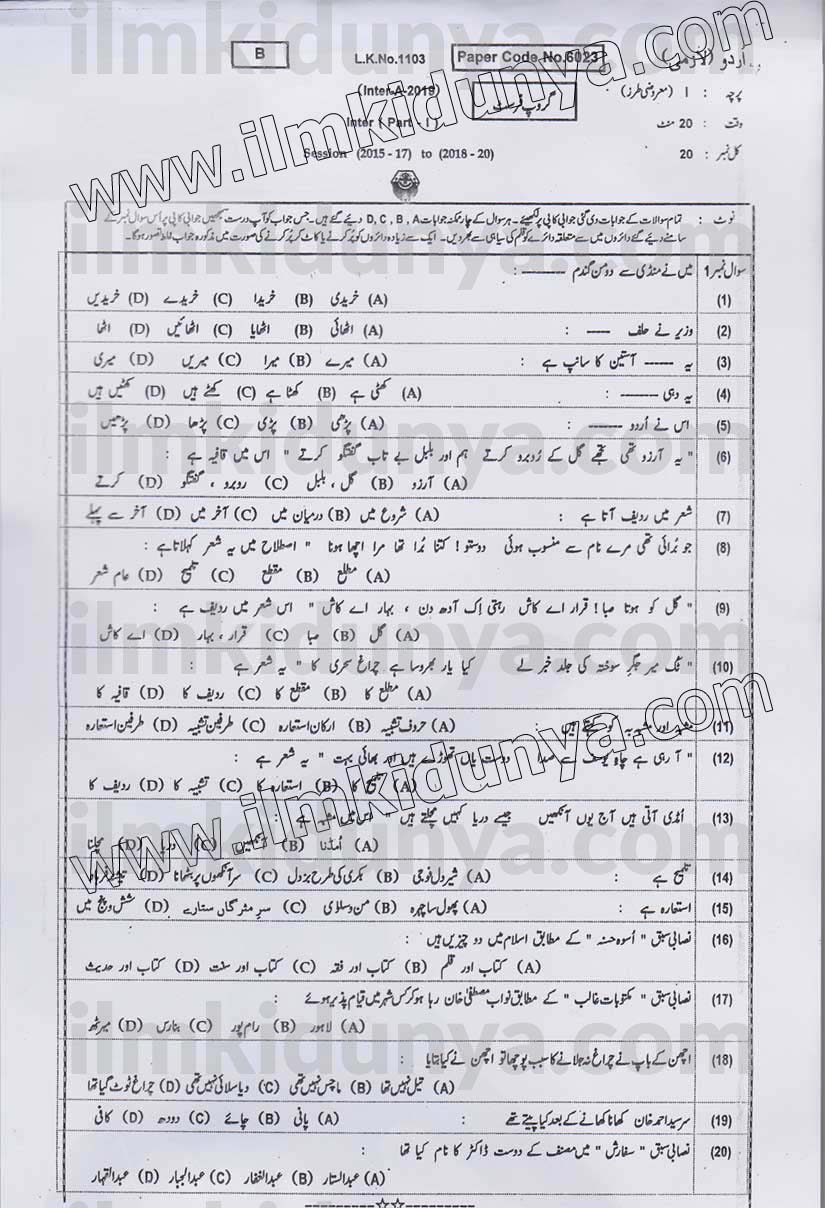 اُردو (لازمی)
Paper Code No.6023
L.K.No.1103
B
پرچہ : I (معروضی طرز)
گروپ فرسٹ
(Inter-A-2019)
وقت : 20 منٹ
Inter ( Part - I )
کل نمبر : 20
Session (2015 - 17) to (2018 - 20)
نوٹ : تمام سوالات کے جوابات دی گئی جوابی کاپی پر لکھیئے۔ ہر سوال کے چار ممکنہ جوابات D, C, B, A دیئے گئے ہیں۔ جس جواب کو آپ درست سمجھیں جوابی کاپی پر اُس سوال نمبر کے
سامنے دیئے گئے دائروں میں سے متعلقہ دائرے کو قلم کی سیاہی سے بھر دیں۔ ایک سے زیادہ دائروں کو پُر کرنے یا کاٹ کر پُر کرنے کی صورت میں مذکورہ جواب غلط تصور ہوگا۔
سوال نمبر 1 میں نے منڈی سے دو من گندم ---------- :
(1) (A) خریدی (B) خریدا (C) خریدے (D) خریدیں
(2) وزیر نے حلف ----- : (A) اٹھائی (B) اٹھایا (C) اٹھائیں (D) اٹھا
(3) یہ ------ آستین کا سانپ ہے : (A) میرے (B) میرا (C) میریں (D) میری
(4) یہ دہی -------- : (A) کھٹی ہے (B) کھٹا ہے (C) کھٹے ہیں (D) کھٹیں ہیں
(5) اس نے اُردو ------- : (A) پڑھی (B) پڑی (C) پڑھا (D) پڑھیں
(6) " یہ آرزو تھی تجھے گل کے رُوبرو کرتے ہم اور بلبل بے تاب گفتگو کرتے " اس میں قافیہ ہے :
(A) آرزو (B) گل ، بلبل (C) روبرو ، گفتگو (D) کرتے
(7) شعر میں ردیف آتا ہے : (A) شروع میں (B) درمیان میں (C) آخر میں (D) آخر سے پہلے
(8) جو بُرائی تھی مرے نام سے منسوب ہوئی دوستو ! کتنا بُرا تھا مرا اچھا ہونا " اصطلاح میں یہ شعر کہلاتا ہے :
(A) مطلع (B) مقطع (C) تلمیح (D) عام شعر
(9) " گل کو ہوتا صبا ! قرار اے کاش رہتی اِک آدھ دن ، بہار اے کاش " اس شعر میں ردیف ہے :
(A) گل (B) صبا (C) قرار ، بہار (D) اے کاش
(10) " ٹک میر جگرِ سوختہ کی جلد خبر لے کیا یار بھروسا ہے چراغِ سحری کا " یہ شعر ہے :
(A) مطلع کا (B) مقطع کا (C) ردیف کا (D) قافیہ کا
(11) مشبہ اور مشبہ بہ کو کہتے ہیں : (A) حروف تشبیہ (B) ارکان استعارہ (C) طرفین تشبیہ (D) طرفین استعارہ
(12) " آ رہی ہے چاہِ یوسف سے صدا دوست یاں تھوڑے ہیں اور بھائی بہت " یہ شعر ہے :
(A) تلمیح کا (B) استعارہ کا (C) تشبیہ کا (D) ردیف کا
(13) اُمڈی آتی ہیں آج یوں آنکھیں جیسے دریا کہیں مچلتے ہیں " اس میں مشبہ ہے :
(A) اُمڈنا (B) آنکھیں (C) دریا (D) مچلنا
(14) تلمیح ہے : (A) شیر دل فوجی (B) بکری کی طرح بزدل (C) سر آنکھوں پر بٹھانا (D)
(15) استعارہ ہے : (A) پھول سا چہرہ (B) من و سلویٰ (C) سرِ مژگاں ستارے (D) شش و پنج میں
(16) نصابی سبق " اسوہ حسنہ " کے مطابق اسلام میں دو چیزیں ہیں :
(A) کتاب اور قلم (B) کتاب اور فقہ (C) کتاب اور سنت (D) کتاب اور حدیث
(17) نصابی سبق " مکتوبات غالب " کے مطابق نواب مصطفیٰ خان رہا ہو کر کس شہر میں قیام پذیر ہوئے
(A) لاہور (B) رام پور (C) بنارس (D) میرٹھ
(18) اچھن کے باپ نے چراغ نہ جلانے کا سبب پوچھا تو اچھن نے کیا بتایا :
(A) تیل نہیں تھا (B) ماچس نہیں تھی (C) دیا سلائی نہیں تھی (D) چراغ ٹوٹ گیا تھا
(19) سر سید احمد خان کھانا کھانے کے بعد کیا پیتے تھے : (A) پانی (B) چائے (C) دودھ (D) کافی
(20) نصابی سبق " سفارش " میں مصنف کے دوست ڈاکٹر کا نام کیا تھا
(A) عبدالستار (B) عبدالغفار (C) عبدالجبار (D) عبدالقہار
---------☆☆---------
www.ilmkidunya.com
www.ilmkidunya.com
ilmkidunya.com
ilmkidunya.com
ilmkidunya.com
ilmkidunya.com
ilmkidunya.com